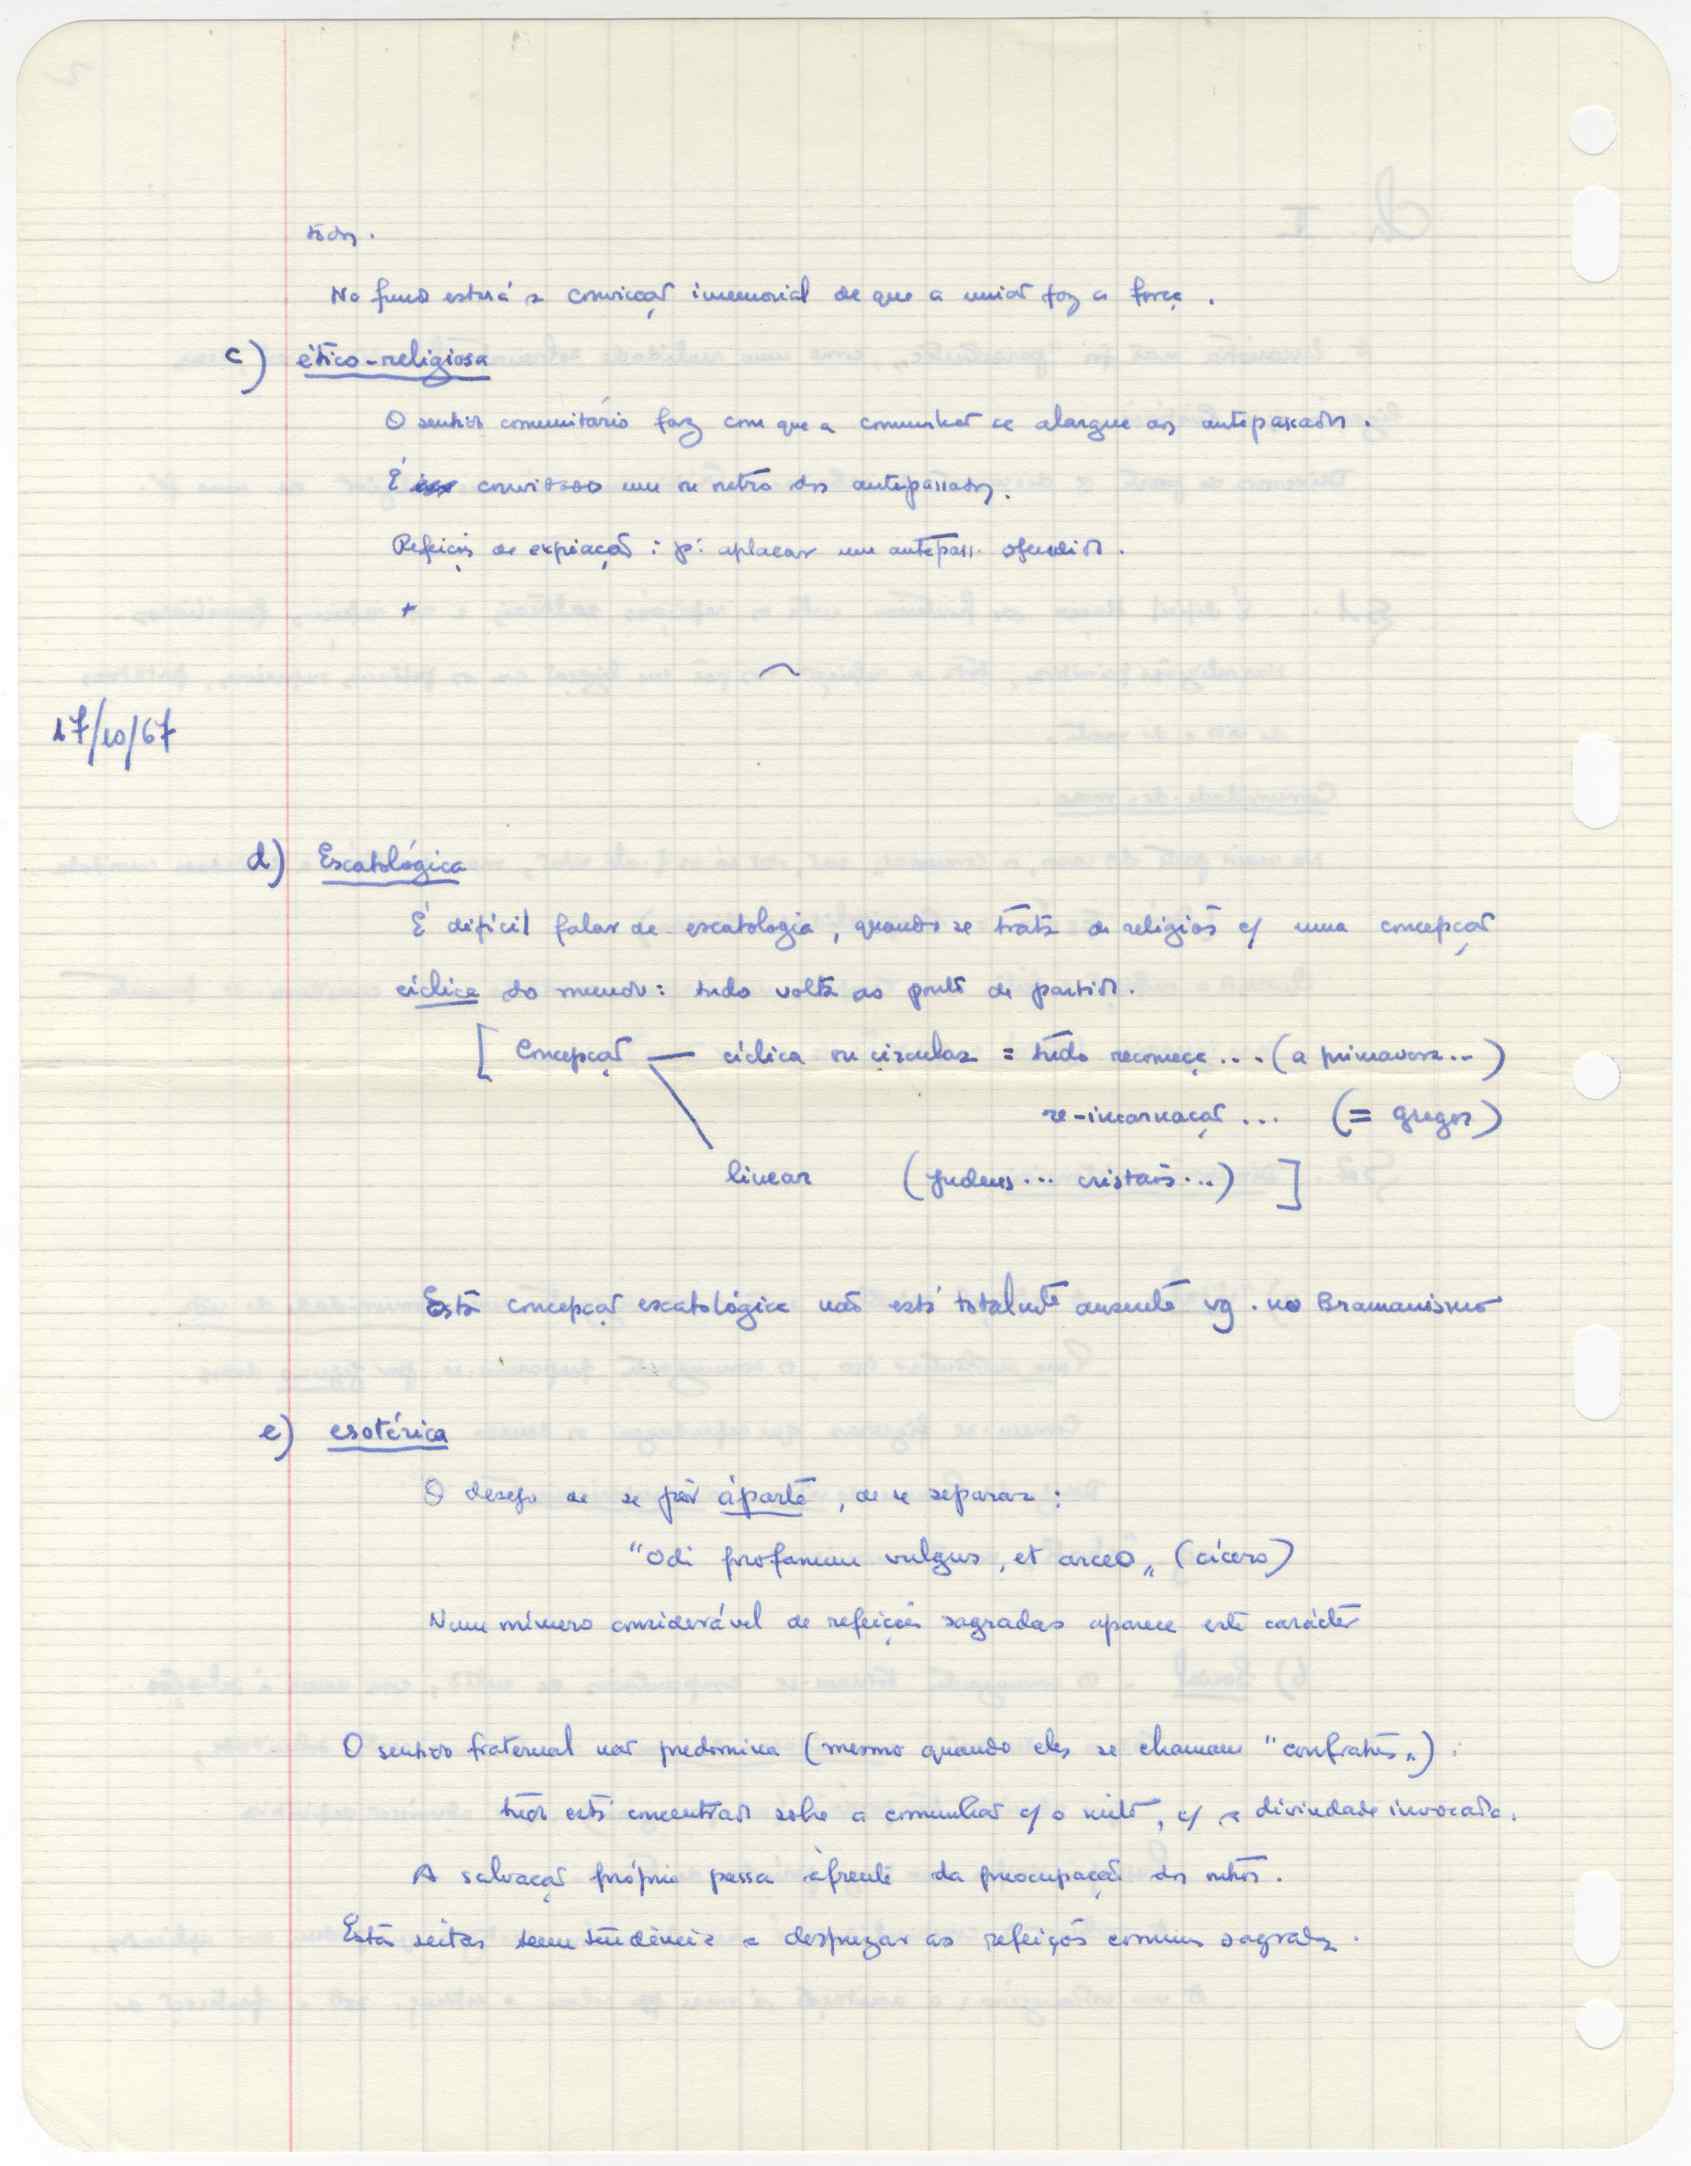 todos.
No fundo estará a convicção imemorial de que a união faz a força.
c) ético-religiosa
O sentido comunitário faz com que a comunhão se alargue aos antepassados.
É convidado um ou outro dos antepassados.
Refeições de expiação: p: aplacar um antepass. ofendido.
+
17/10/67
d) Escatológica
É difícil falar de escatologia, quando se trata de religiões c/ uma concepção
cíclica do mundo: tudo volta ao ponto de partida.
[ Concepção — cíclica ou circular = tudo recomeça... (a primavera...)
re-incarnação... (= gregos)
linear (judeus... cristãos...) ]
Esta concepção escatológica não está totalmte ausente vg. no Bramanismo
e) esotérica
O desejo de se pôr àparte, de se separar:
"Odi profanum vulgus, et arceo" (cícero)
Num número considerável de refeições sagradas aparece este carácter
O sentido fraternal não predomina (mesmo quando eles se chamam "confrades"):
tudo está concentrado sobre a comunhão c/ o mito, c/ a divindade invocada.
A salvação própria passa àfrente da preocupação dos outros.
Estas seitas teem tendência a desprezar as refeições comuns sagradas.